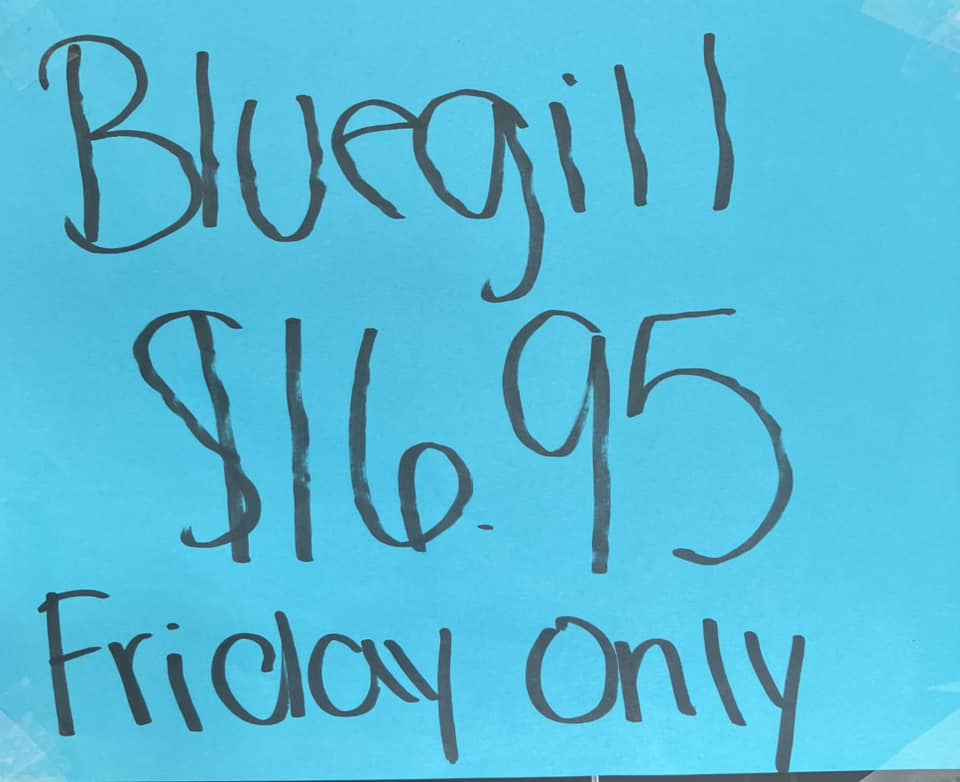 Bluegill
$16.95
Friday Only